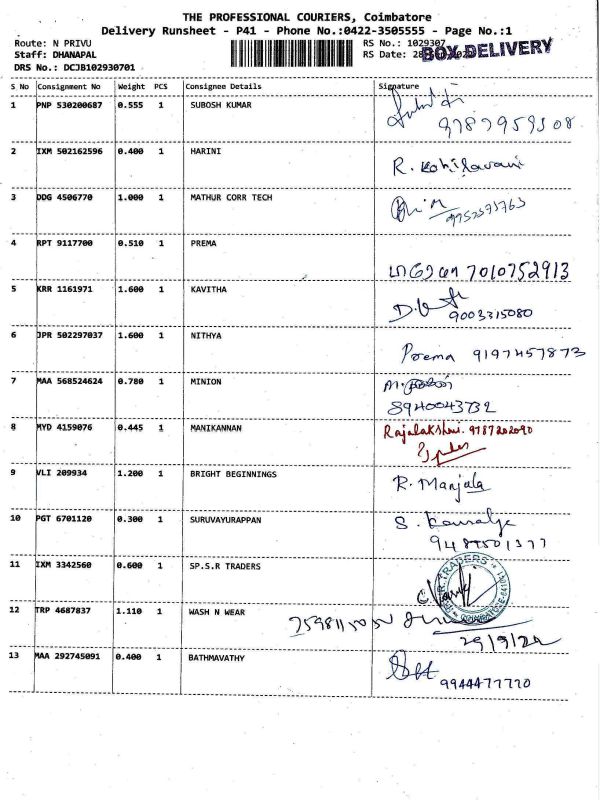 THE PROFESSIONAL COURIERS, Coimbatore
Delivery Runsheet - P41 - Phone No.:0422-3505555 - Page No.:1
Route: N PRIVU RS No.: 1029307
Staff: DHANAPAL RS Date: BOX DELIVERY
DRS No.: DCJB102930701
S No Consignment No Weight PCS Consignee Details Signature
1 PNP 530200687 0.555 1 SUBOSH KUMAR
2 IXM 502162596 0.400 1 HARINI R. Kohilavani
3 DDG 4506770 1.000 1 MATHUR CORR TECH
4 RPT 9117700 0.510 1 PREMA 7010752913
5 KRR 1161971 1.600 1 KAVITHA
9003315080
6 JPR 502297037 1.600 1 NITHYA
Poema 9197457873
7 MAA 568524624 0.780 1 MINION
8940043732
8 MYD 4159076 0.445 1 MANIKANNAN Rajalakshmi. 9787202090
9 VLI 209934 1.200 1 BRIGHT BEGINNINGS R. Manjala
10 PGT 6701120 0.300 1 SURUVAYURAPPAN
11 IXM 3342560 0.600 1 SP.S.R TRADERS
TRADERS
12 TRP 4687837 1.110 1 WASH N WEAR
29/9/22
13 MAA 292745091 0.400 1 BATHMAVATHY
9944477770